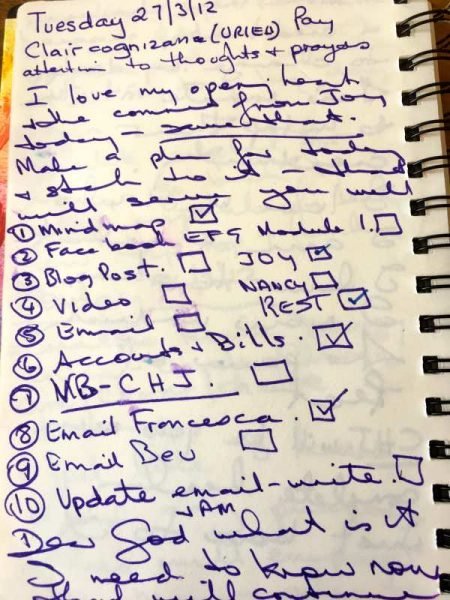 Tuesday 27/3/12
Claircognizance (URIEL) Pay
attention to thoughts + prayers
I love my open heart
+ the comment from Joy
today -
Make a plan for today
+ stick to it - that
will serve you well
① Mind map ☑
② Facebook EFG Module 1. ☐
③ Blog Post. ☐ JOY ☑
④ Video ☐ NANCY ☐
⑤ Email ☐ REST ☑
⑥ Accounts + Bills. ☑
⑦ MB-CHJ. ☐
⑧ Email Francesca. ☑
⑨ Email Bev ☐
⑩ Update email-write. ☐
+ AM
Dear God what is it
I need to know now
will continue